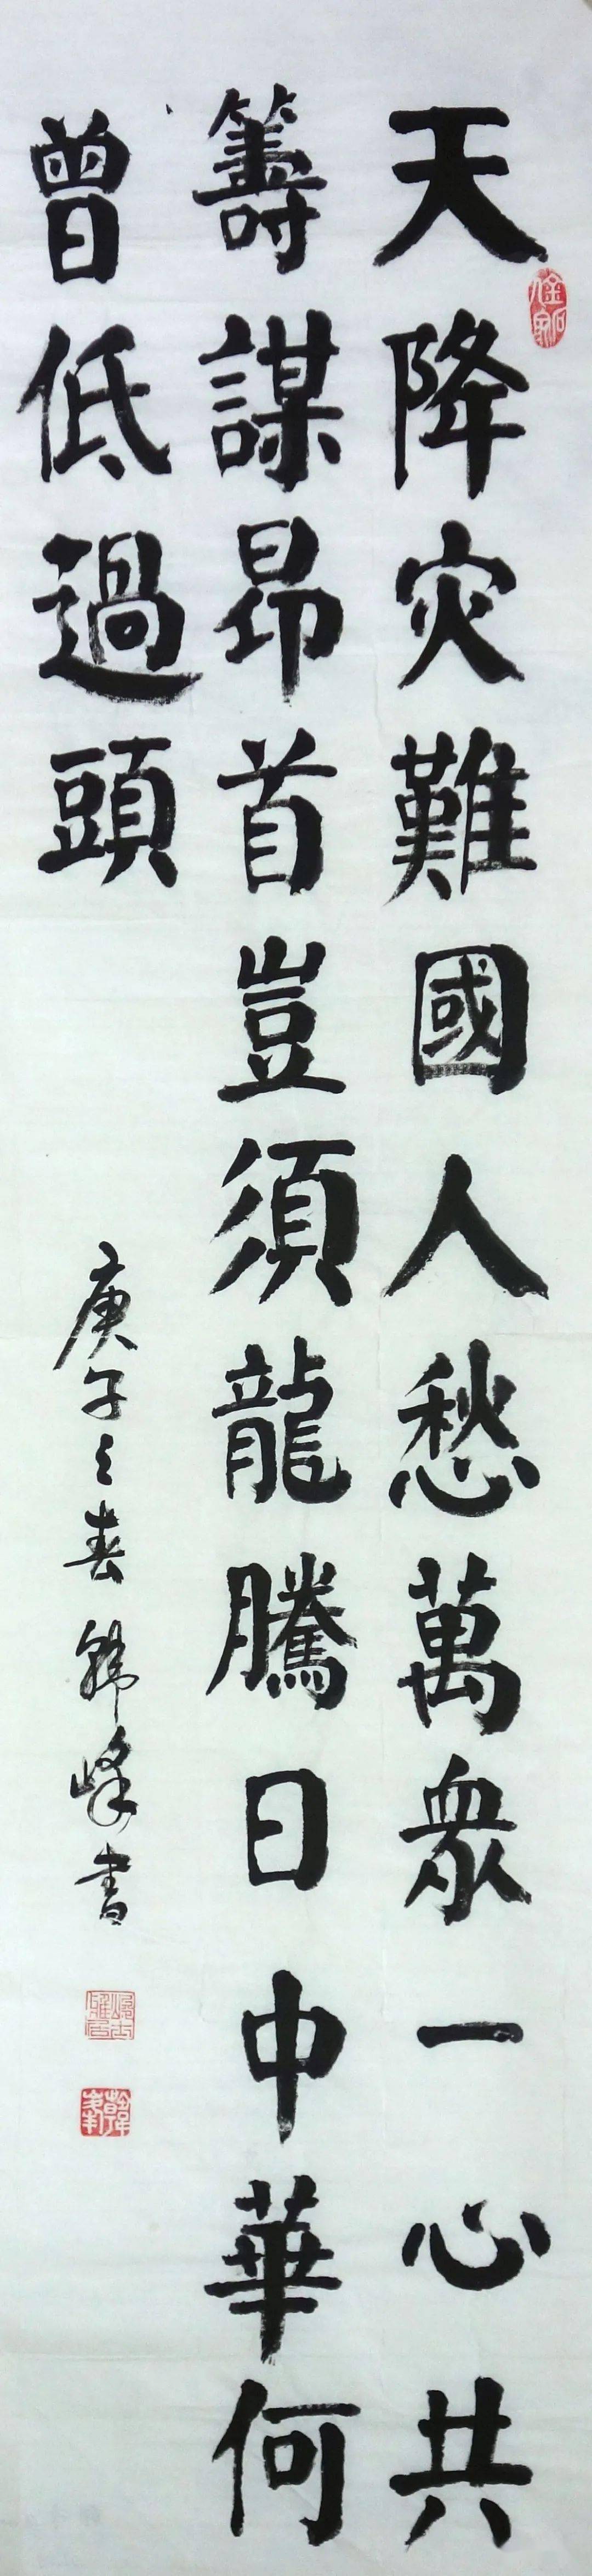 天降灾難國人愁萬眾一心共
籌謀昂首豈須龍騰日中華何
曾低過頭
庚子之春韓峰書